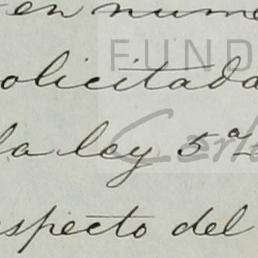 en nume
FUND
olicitada
Carl
la ley 5ª
specto del